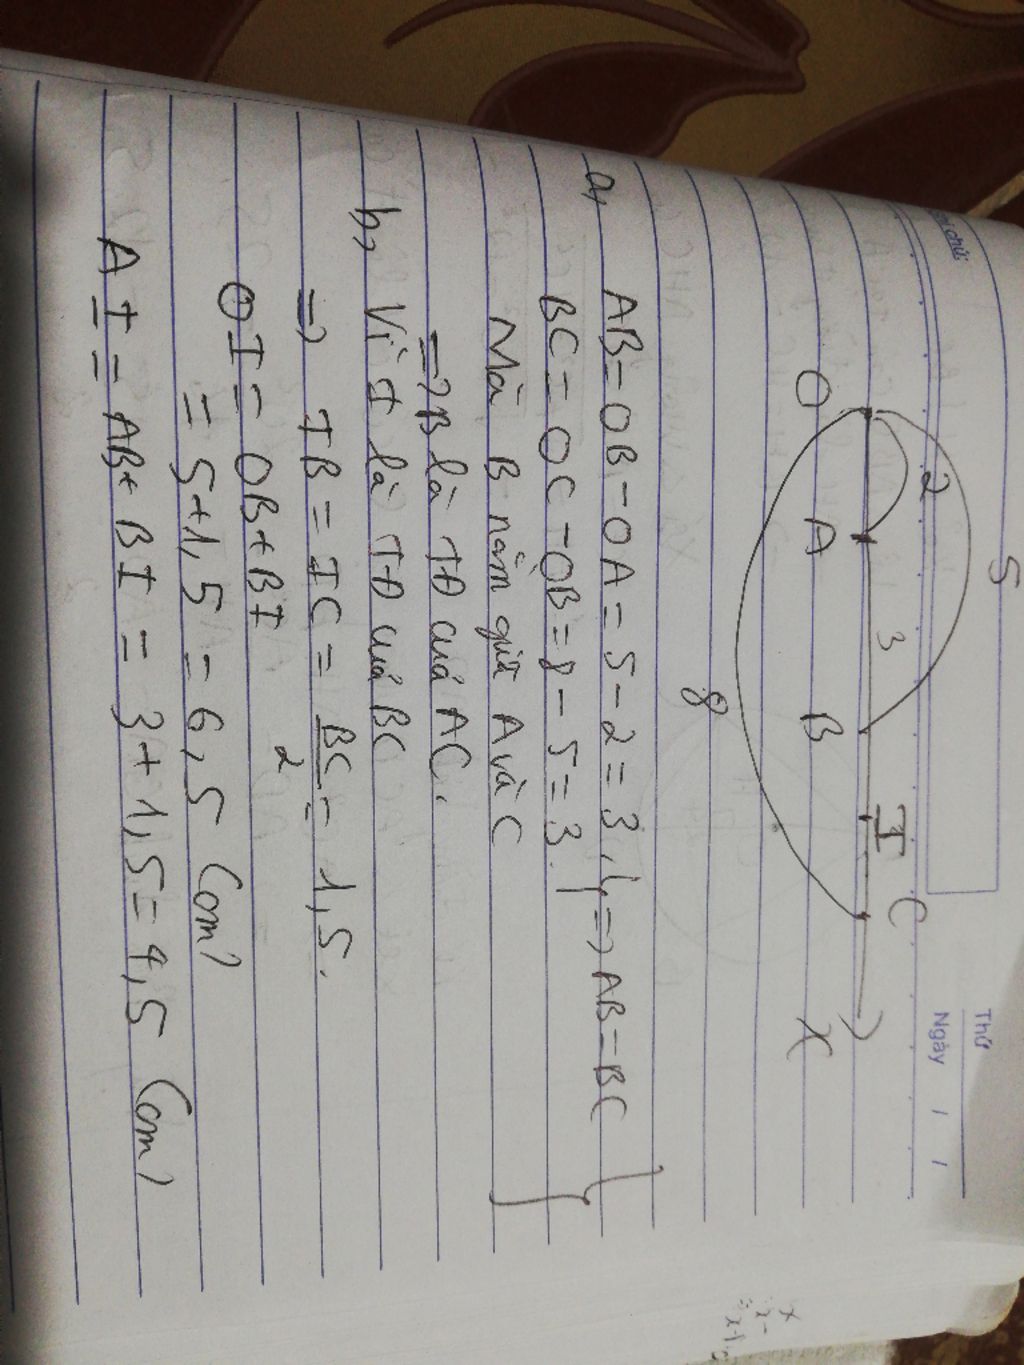 Thứ
Ngày / /
5
2
3
O A B I C x
8
a, AB = OB - OA = 5 - 2 = 3 } => AB = BC
BC = OC - OB = 8 - 5 = 3.
Mà B nằm giữa A và C
=> B là TĐ của AC.
b, Vì I là TĐ của BC
=> IB = IC = BC/2 = 1,5.
OI = OB + BI
= 5 + 1,5 = 6,5 (cm)
AI = AB + BI = 3 + 1,5 = 4,5 (cm)